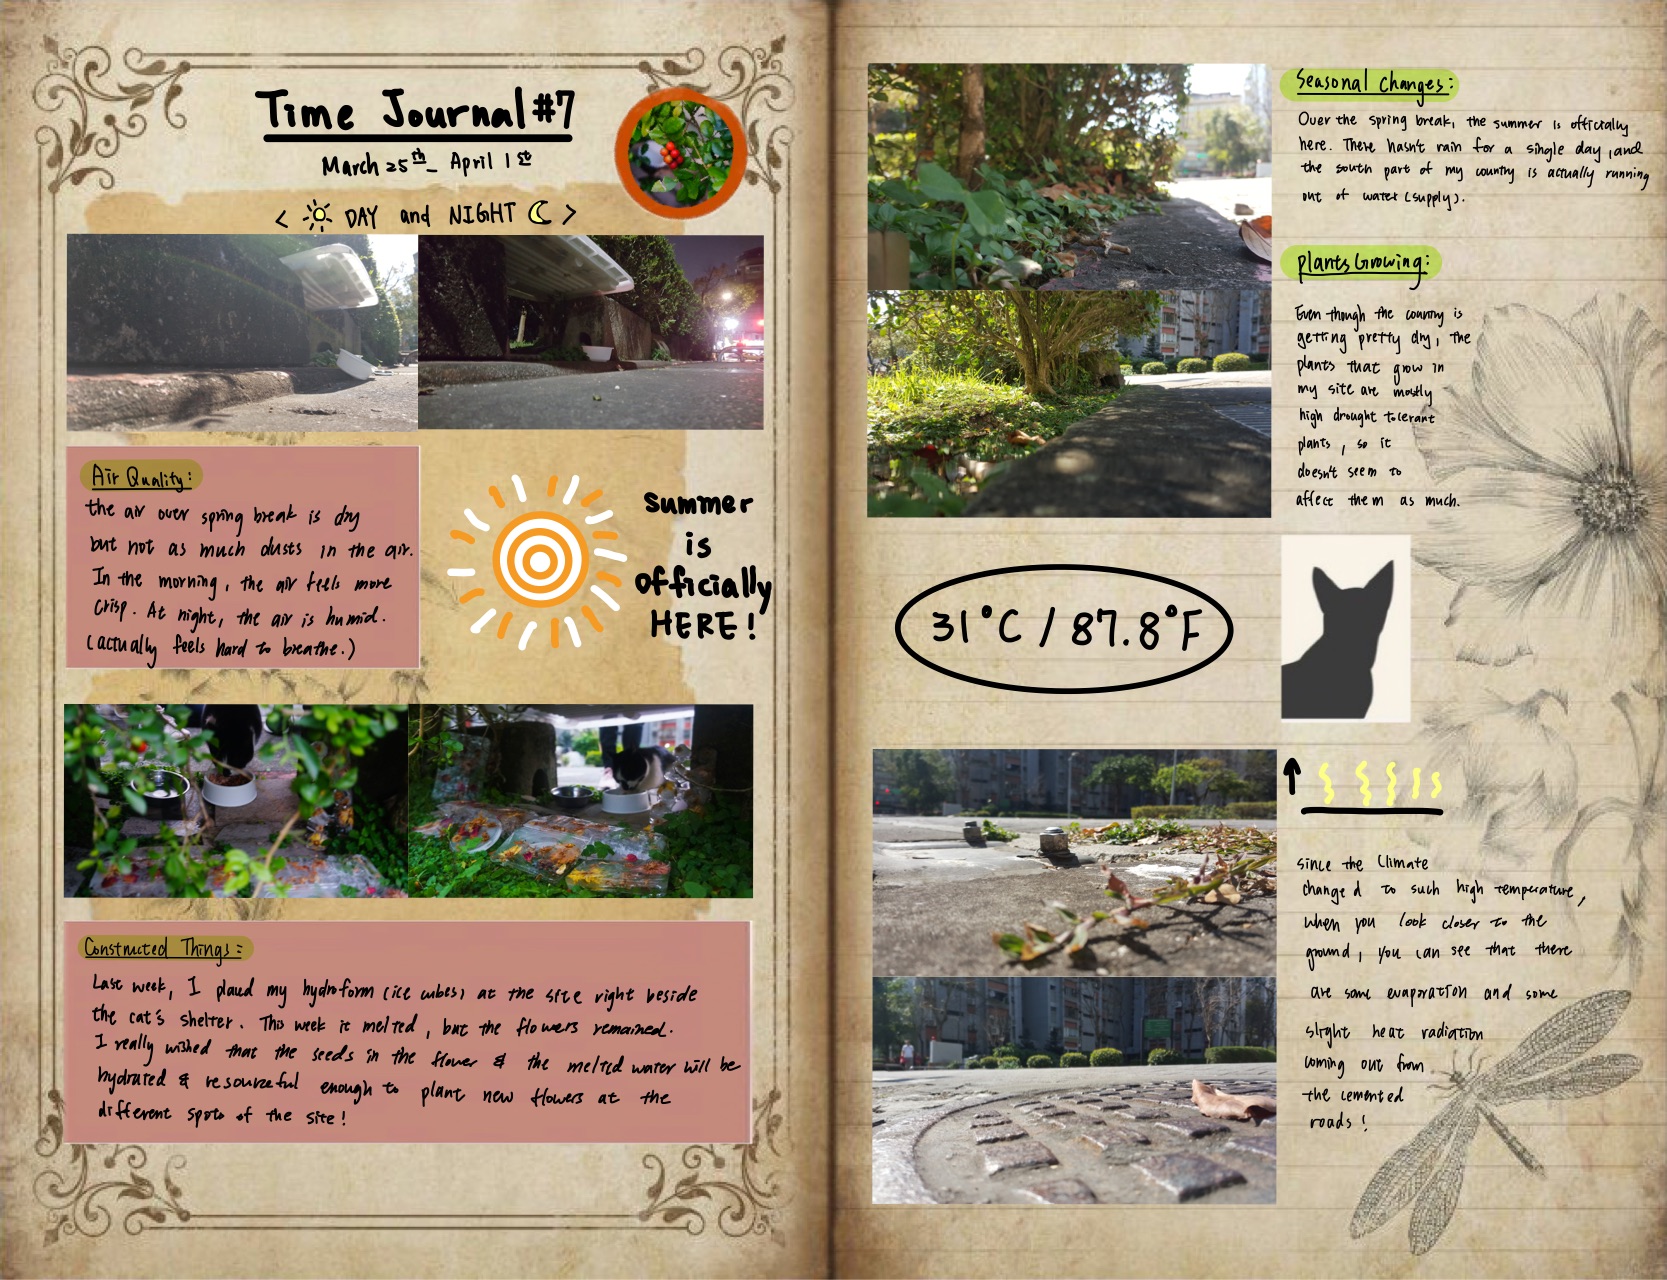 Time Journal #7
March 25th - April 1st
< DAY and NIGHT >
Air Quality:
the air over spring break is dry
but not as much dusts in the air.
In the morning, the air feels more
crisp. At night, the air is humid.
(actually feels hard to breathe.)
Summer
is
officially
HERE!
Constructed Things:
Last week, I placed my hydroform (ice cubes) at the site right beside
the cat's shelter. This week it melted, but the flowers remained.
I really wished that the seeds in the flower & the melted water will be
hydrated & resourceful enough to plant new flowers at the
different spots of the site!
Seasonal Changes:
Over the spring break, the summer is officially
here. There hasn't rain for a single day, and
the south part of my country is actually running
out of water (supply).
Plants Growing:
Even though the country is
getting pretty dry, the
plants that grow in
my site are mostly
high drought tolerant
plants, so it
doesn't seem to
affect them as much.
31°C / 87.8°F
since the Climate
changed to such high temperature,
when you look closer to the
ground, you can see that there
are some evaporation and some
slight heat radiation
coming out from
the cemented
roads!